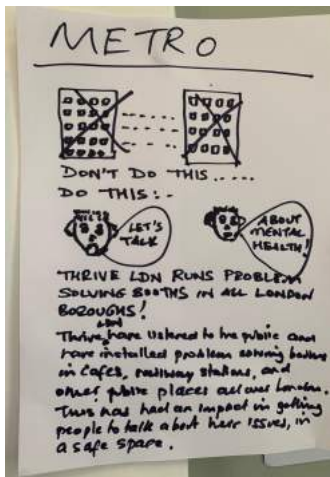 METRO
DON'T DO THIS.....
DO THIS:-
LET'S
TALK
ABOUT
MENTAL
HEALTH!
THRIVE LDN RUNS PROBLEM
SOLVING BOOTHS IN ALL LONDON
BOROUGHS!
Thrive LDN have listened to the public and
have installed problem solving booths
in cafes, railway stations, and
other public places all over London.
This has had an impact in getting
people to talk about their issues, in
a safe space.